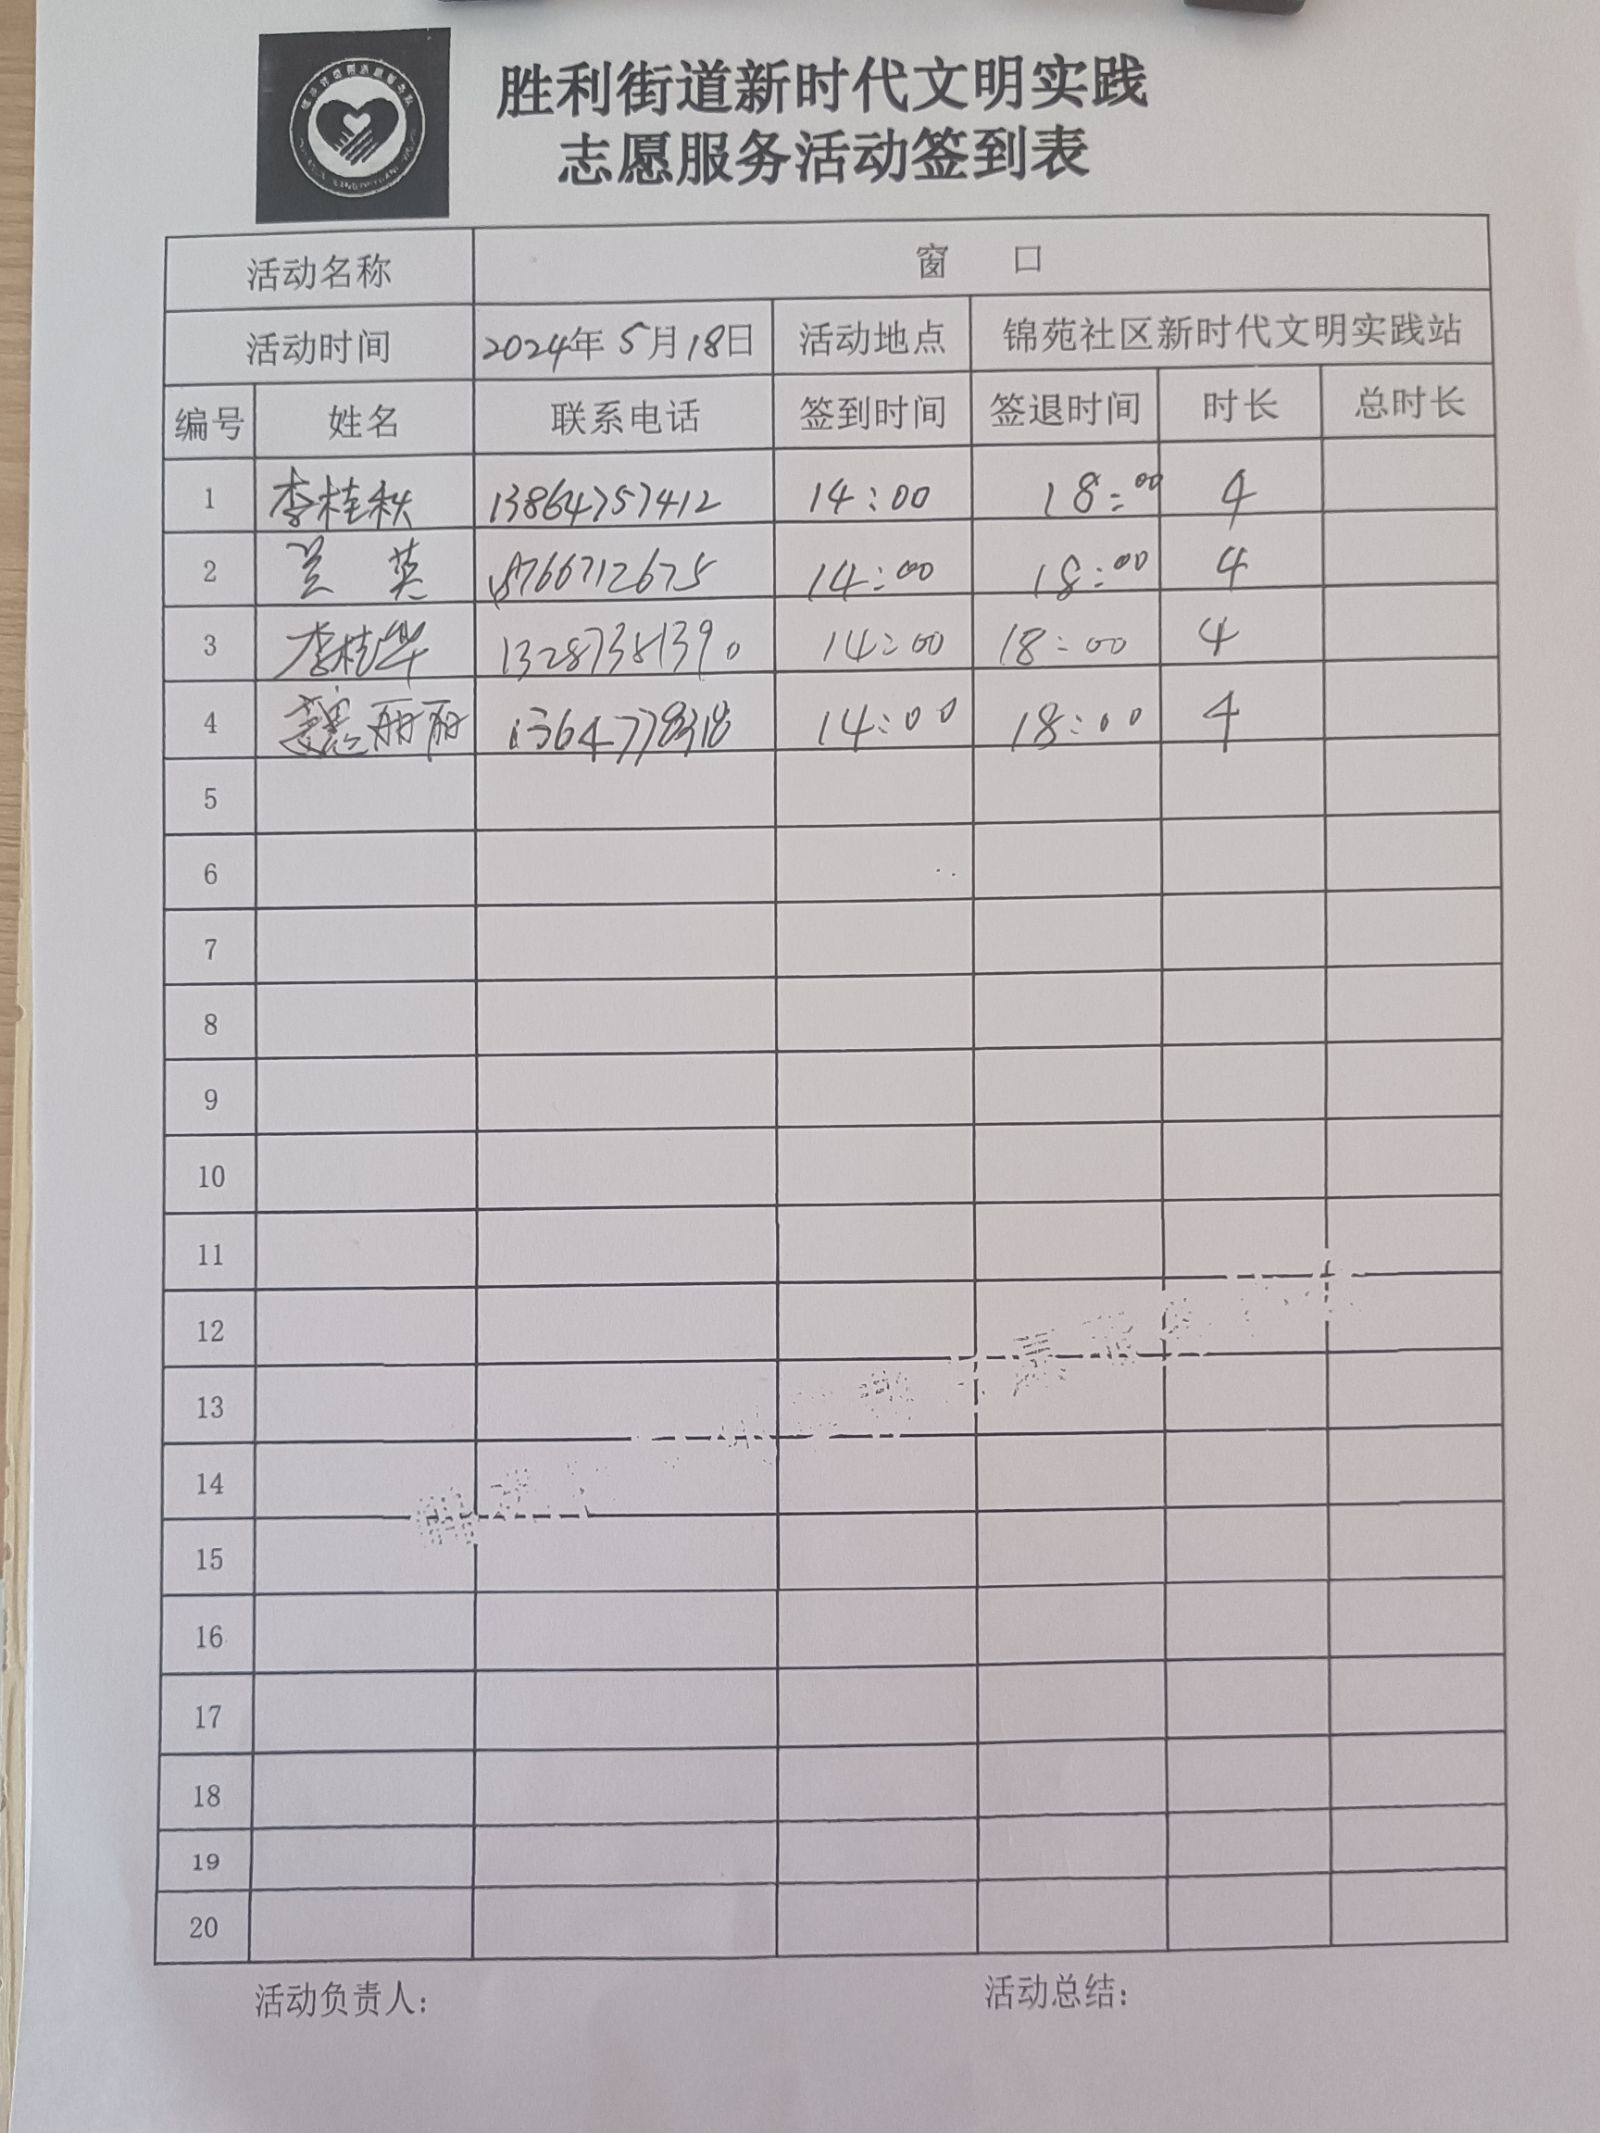 胜利街道新时代文明实践
志愿服务活动签到表
活动名称 窗 口
活动时间 2024年5月18日 活动地点 锦苑社区新时代文明实践站
编号 姓名 联系电话 签到时间 签退时间 时长 总时长
1 李桂秋 13864757412 14:00 18:00 4
2 兰 英 18766712675 14:00 18:00 4
3 李桂华 13287381390 14:00 18:00 4
4 丽丽 13647798318 14:00 18:00 4
5
6
7
8
9
10
11
12
13
14
15
16
17
18
19
20
活动负责人: 活动总结: